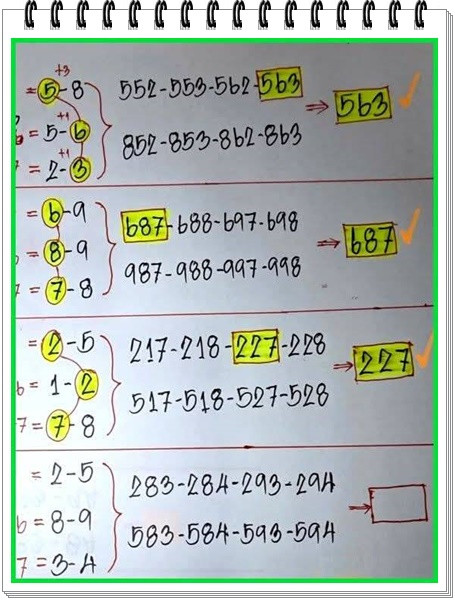 +3
= 5-8
552-553-562-563
⇒ 563
+1
= 5-6
852-853-862-863
+1
= 2-3
= 6-9
687-688-697-698
= 8-9
⇒ 687
987-988-997-998
= 7-8
= 2-5
217-218-227-228
= 1-2
⇒ 227
517-518-527-528
7 = 7-8
= 2-5
283-284-293-294
= 8-9
583-584-593-594
7 = 3-4